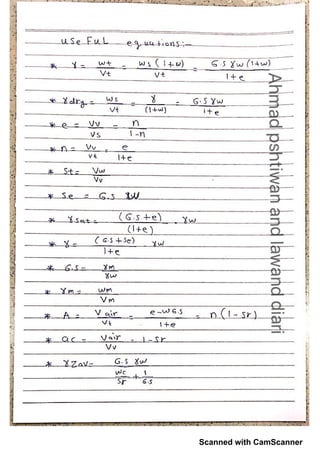 useful equations:-
* γ = Wt/Vt = Ws(1+w)/Vt = G.S γw(1+w)/1+e
* γdry = Ws/Vt = γ/(1+w) = G.S γw/1+e
* e = Vv/Vs = n/1-n
* n = Vv/Vt = e/1+e
* St = Vw/Vv
* Se = G.S W
* γSat = (G.S+e)/(1+e) . γw
* γ = (G.S+Se)/1+e γw
* G.S = γm/γw
* γm = Wm/Vm
* A = V air/Vt = e-wG.S/1+e = n(1-Sr)
* ac = Vair/Vv = 1-Sr
* γZav = G.S γw/wc/Sr + 1/G.S
Ahmad pshtiwan and lawand diari
Scanned with CamScanner